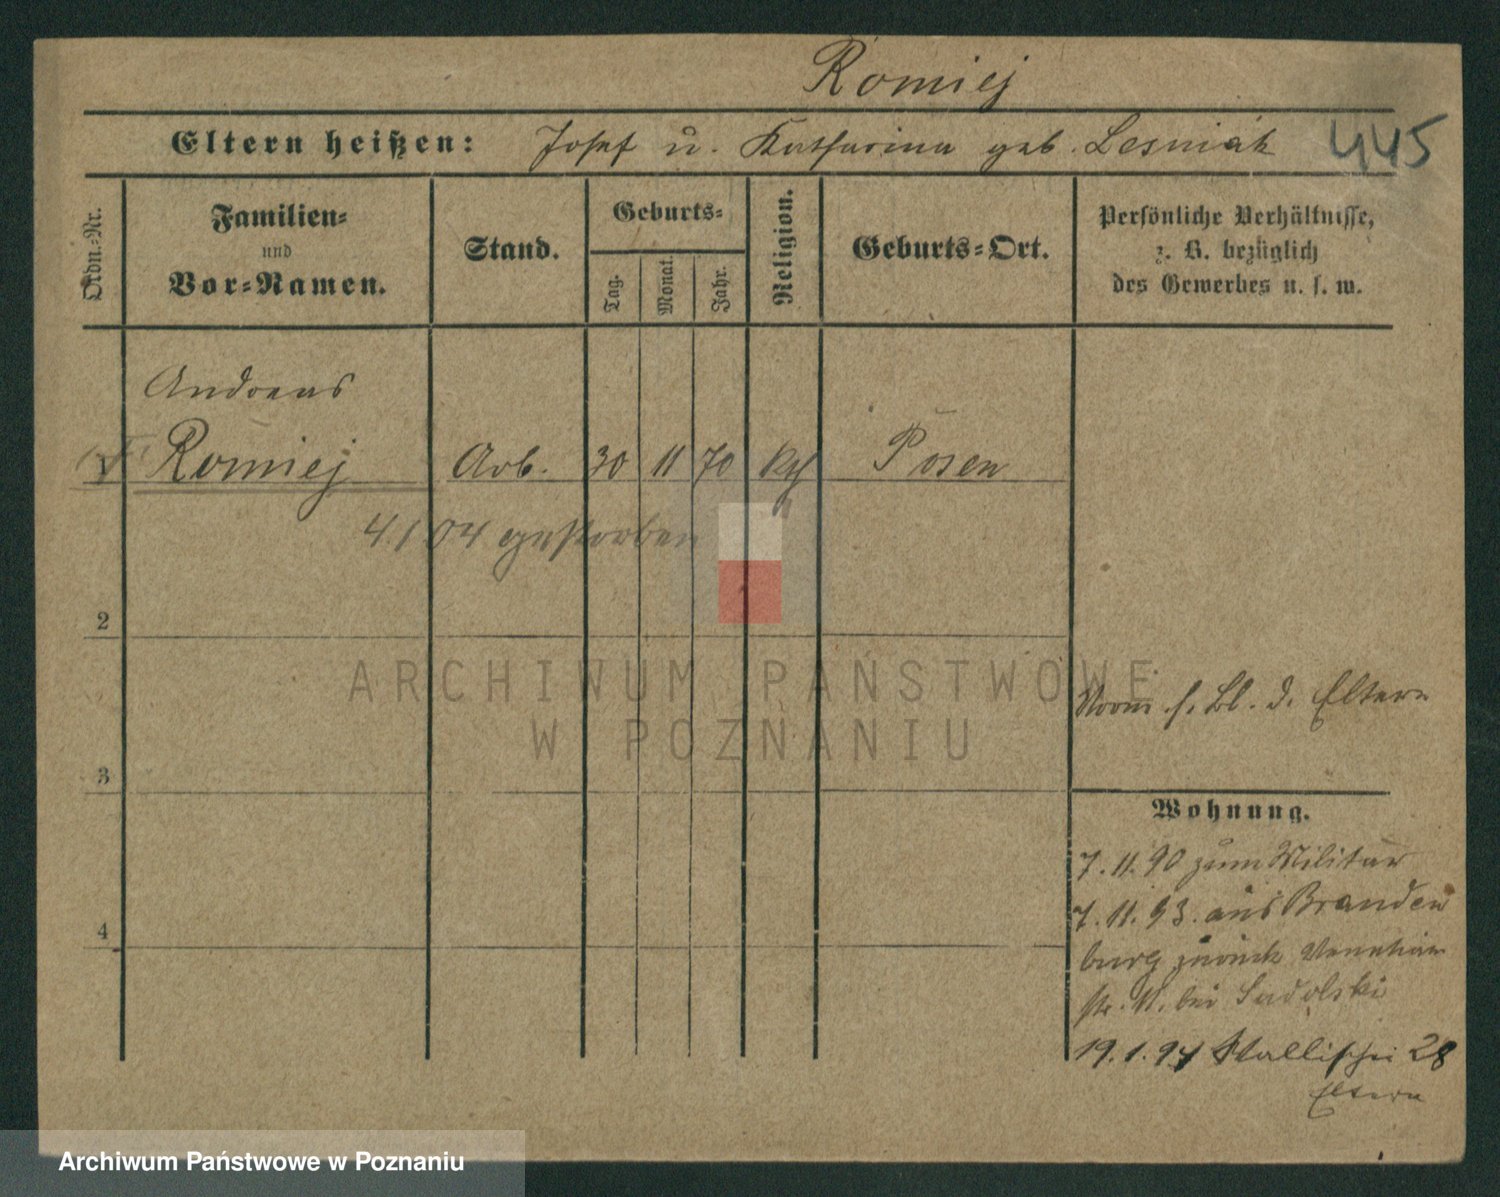 Romiej
Eltern heißen: Josef u. Katharina geb. Lesniak 445
Ordn.-Nr.
Familien-
und
Vor-Namen.
Stand.
Geburts-
Tag.
Monat.
Jahr.
Religion.
Geburts-Ort.
Persönliche Verhältnisse,
z. B. bezüglich
des Gewerbes u. s. w.
Andreas
1 Romiej Arb. 30 11 70 kth Posen
4.1.04 gestorben
2
ARCHIWUM PAŃSTWOWE
W POZNANIU
s. Bl. d. Eltern
3
Wohnung.
7.11.90 zum Militär
7.11.93. aus Branden
burg zurück Venetian
str. 11. bei Sadolski
4
19.1.94 Wallischei 28
Eltern
Archiwum Państwowe w Poznaniu